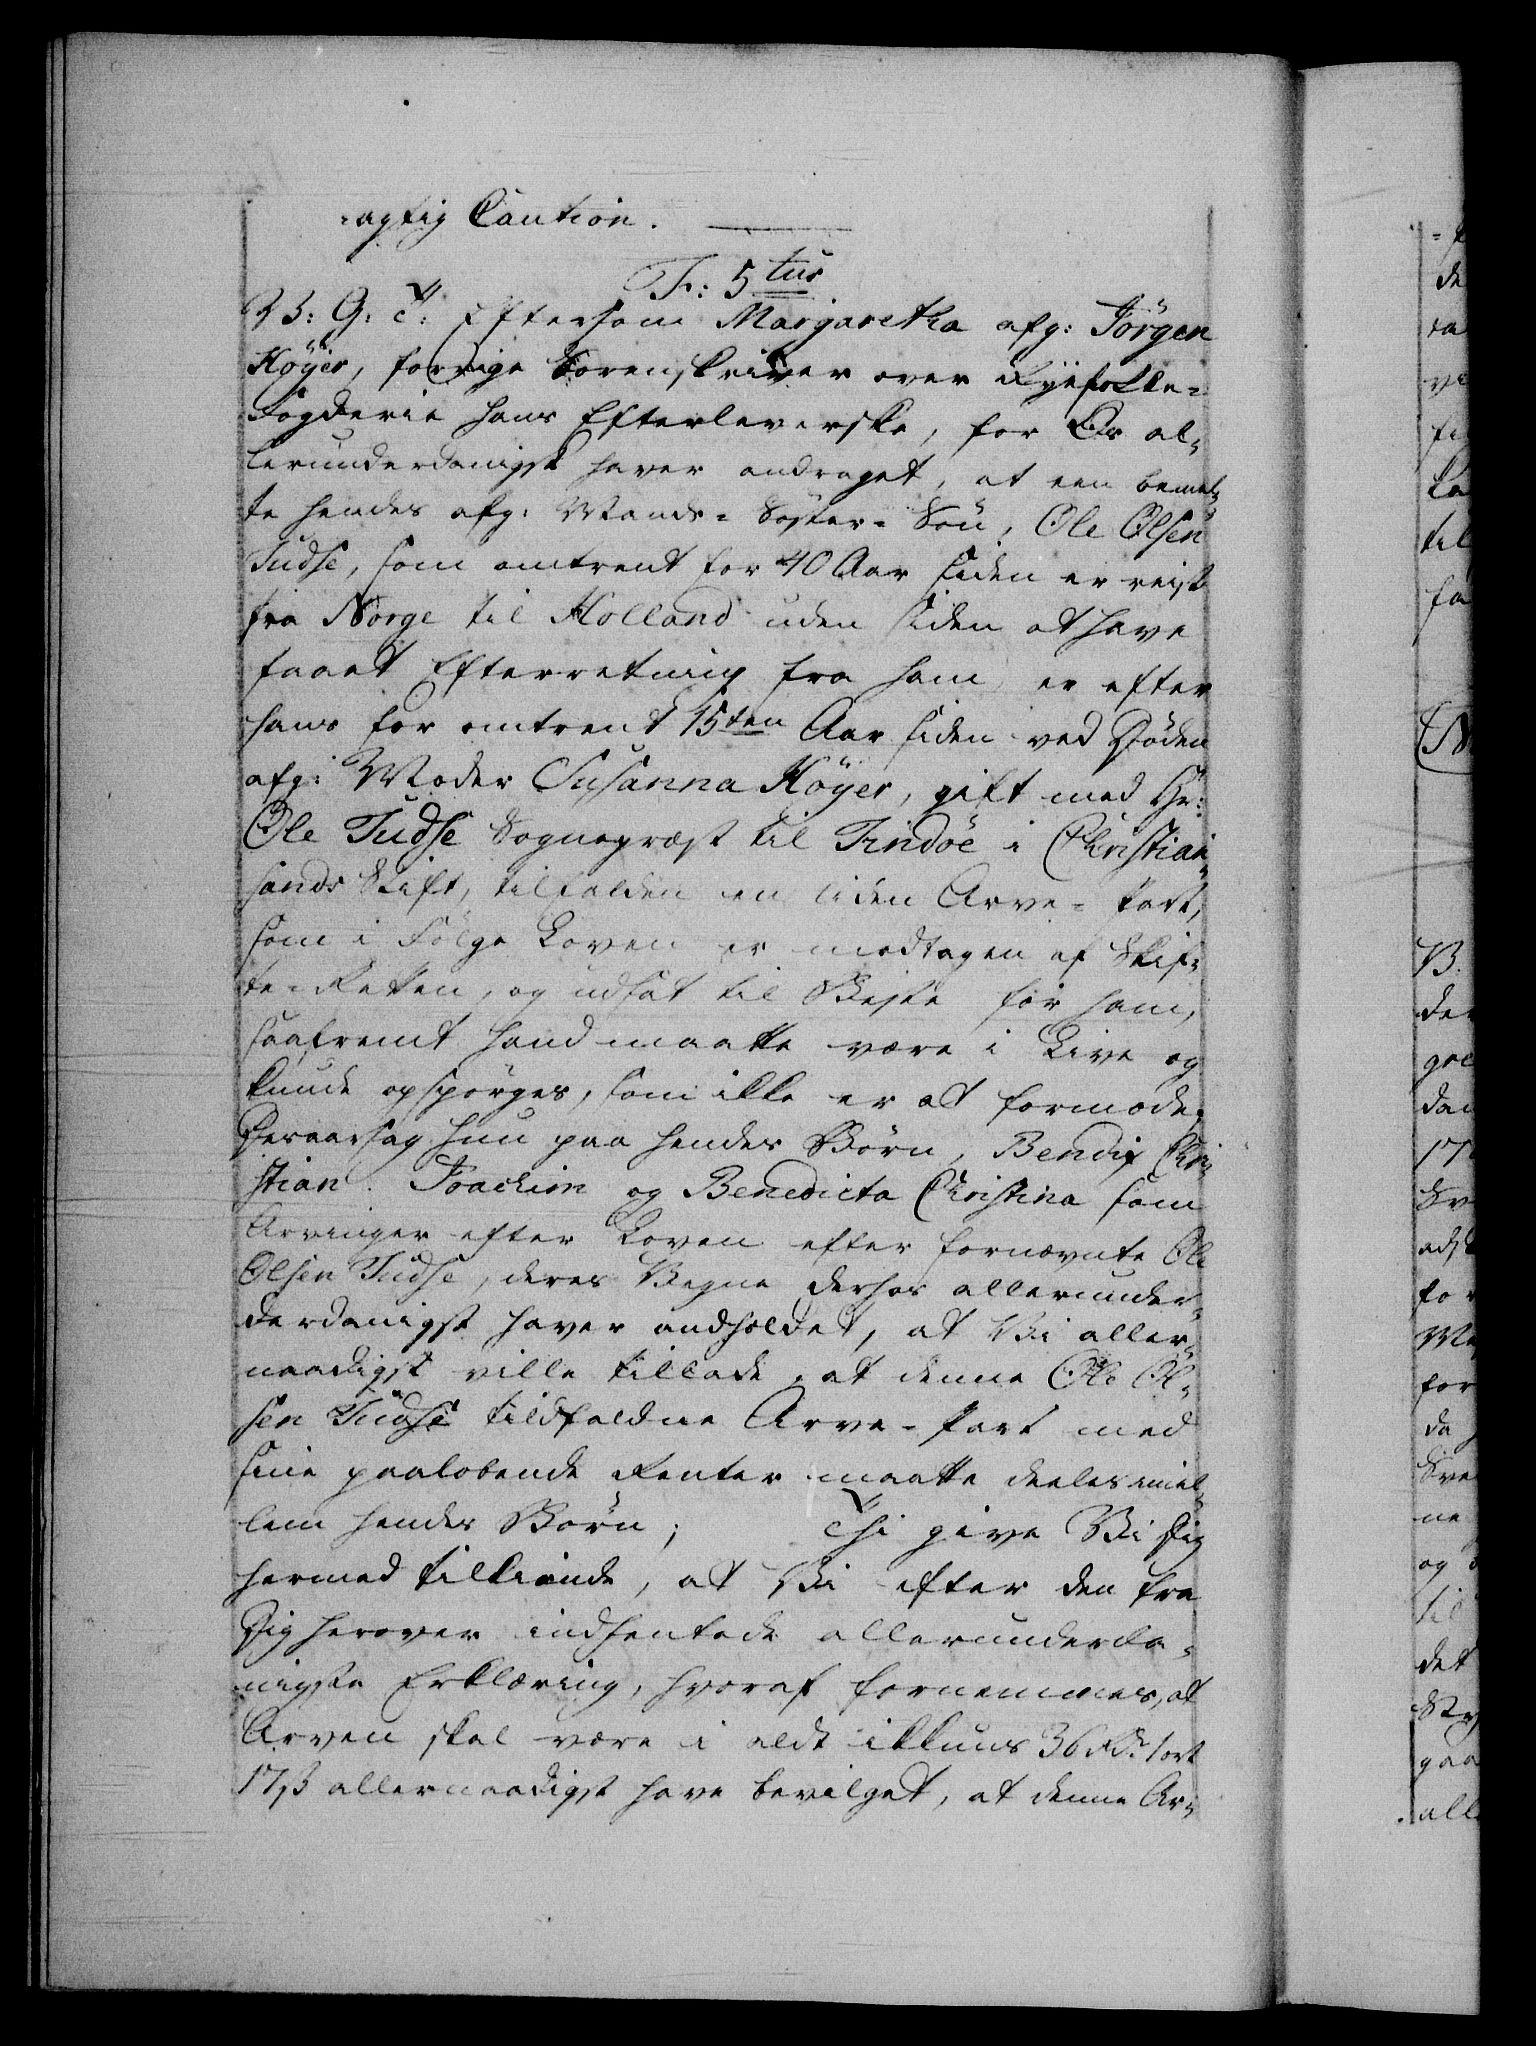 -agtig Caution.
F: 5tus
V: G: T: Eftersom Margaretha afg: Jörgen
Höyer, forrige Sorenskriver over Ryefylke-
Fogderie hans Efterleverske, for Os al-
lerunderdanigst haver andraget, at een bemel-
te hendes afg: Mands-Söster-Sön, Ole Olsen
Tudse, som omtrent for 40 Aar siden er reist
fra Norge til Holland uden siden at have
faaet Efterretning fra ham, er efter
hans for omtrent 15ten Aar siden ved Döden
afg: Moder Susanna Höyer, gift med Hr:
Ole Tudse Sognepræst til Findöe i Christian-
sands Stift, tilfalden en liden Arve-Part,
som i Fölge Loven er modtagen af Skif-
te-Retten, og udsat til Beste for ham,
saafremt hand maatte være i Live og
kunde opspörges, som ikke er at formode;
Desaarsag hun paa hendes Börn, Bendix Chri-
stian Joachim og Benedicta Christina som
Arvinger efter Loven efter fornævnte Ole
Olsen Tudse, deres Vegne derhos allerunder-
derdanigst haver andholdet, at Vi aller-
naadigst ville tillade, at denne Ole Ol-
sen Tudse tildfaldne Arve-Part med
sine paalobende Renter maatte deeles imel-
lem hendes Börn; Thi give Vi Dig
hermed tilkiende, at Vi efter den fra
Dig herover indhentede allerunderda-
nigste Erklæring, hvoraf fornemmes, at
Arven skal være i aldt ikkuns 36 Rd. 1 ort
17 ß allernaadigst have bevilget, at denne Ar-